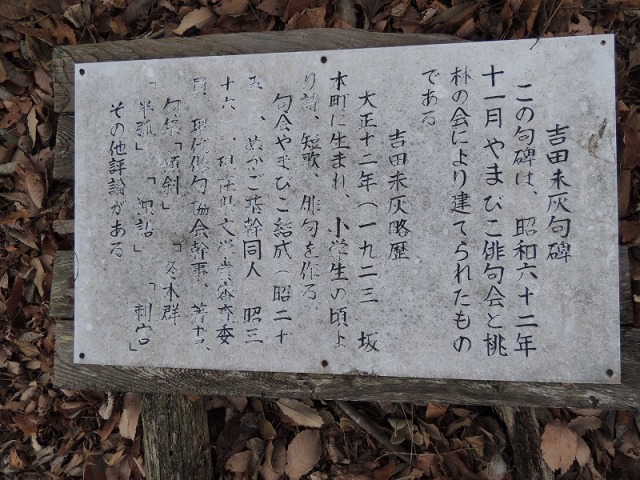 吉田未灰句碑
この句碑は、昭和六十二年
十一月やまびこ俳句会と桃
林の会により建てられたもの
である
吉田未灰略歴
大正十二年(一九二三 坂
本町に生まれ、小学生の頃よ
り詩、短歌、俳句を作る。
句会やまびこ結成(昭二十
、ぬかご 幹同人 昭三
十六)、現 県文学賞審査委
員 現代俳句協会幹事、著書、
句集「傾斜」 「冬木群
「半弧」 「刺客」
その他評論がある